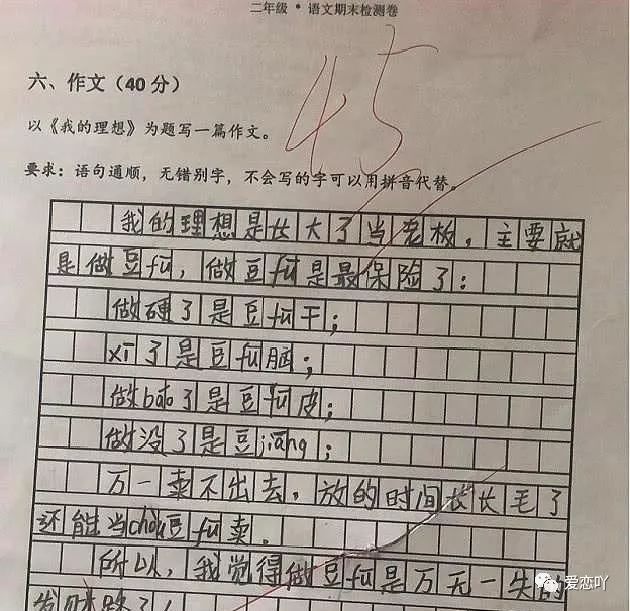 二年级 • 语文期末检测卷
45
六、作文（40 分）
以《我的理想》为题写一篇作文。
要求：语句通顺，无错别字，不会写的字可以用拼音代替。
我的理想是长大了当老板，主要就
是做豆fu，做豆fu是最保险了：
做硬了是豆fu干；
xī了是豆fu脑；
做báo了是豆fu皮；
做没了是豆jiāng；
万一卖不出去，放的时间长长毛了
还能当chòu豆fu卖。
所以，我觉得做豆fu是万无一失的
发财路了！
爱恋吖